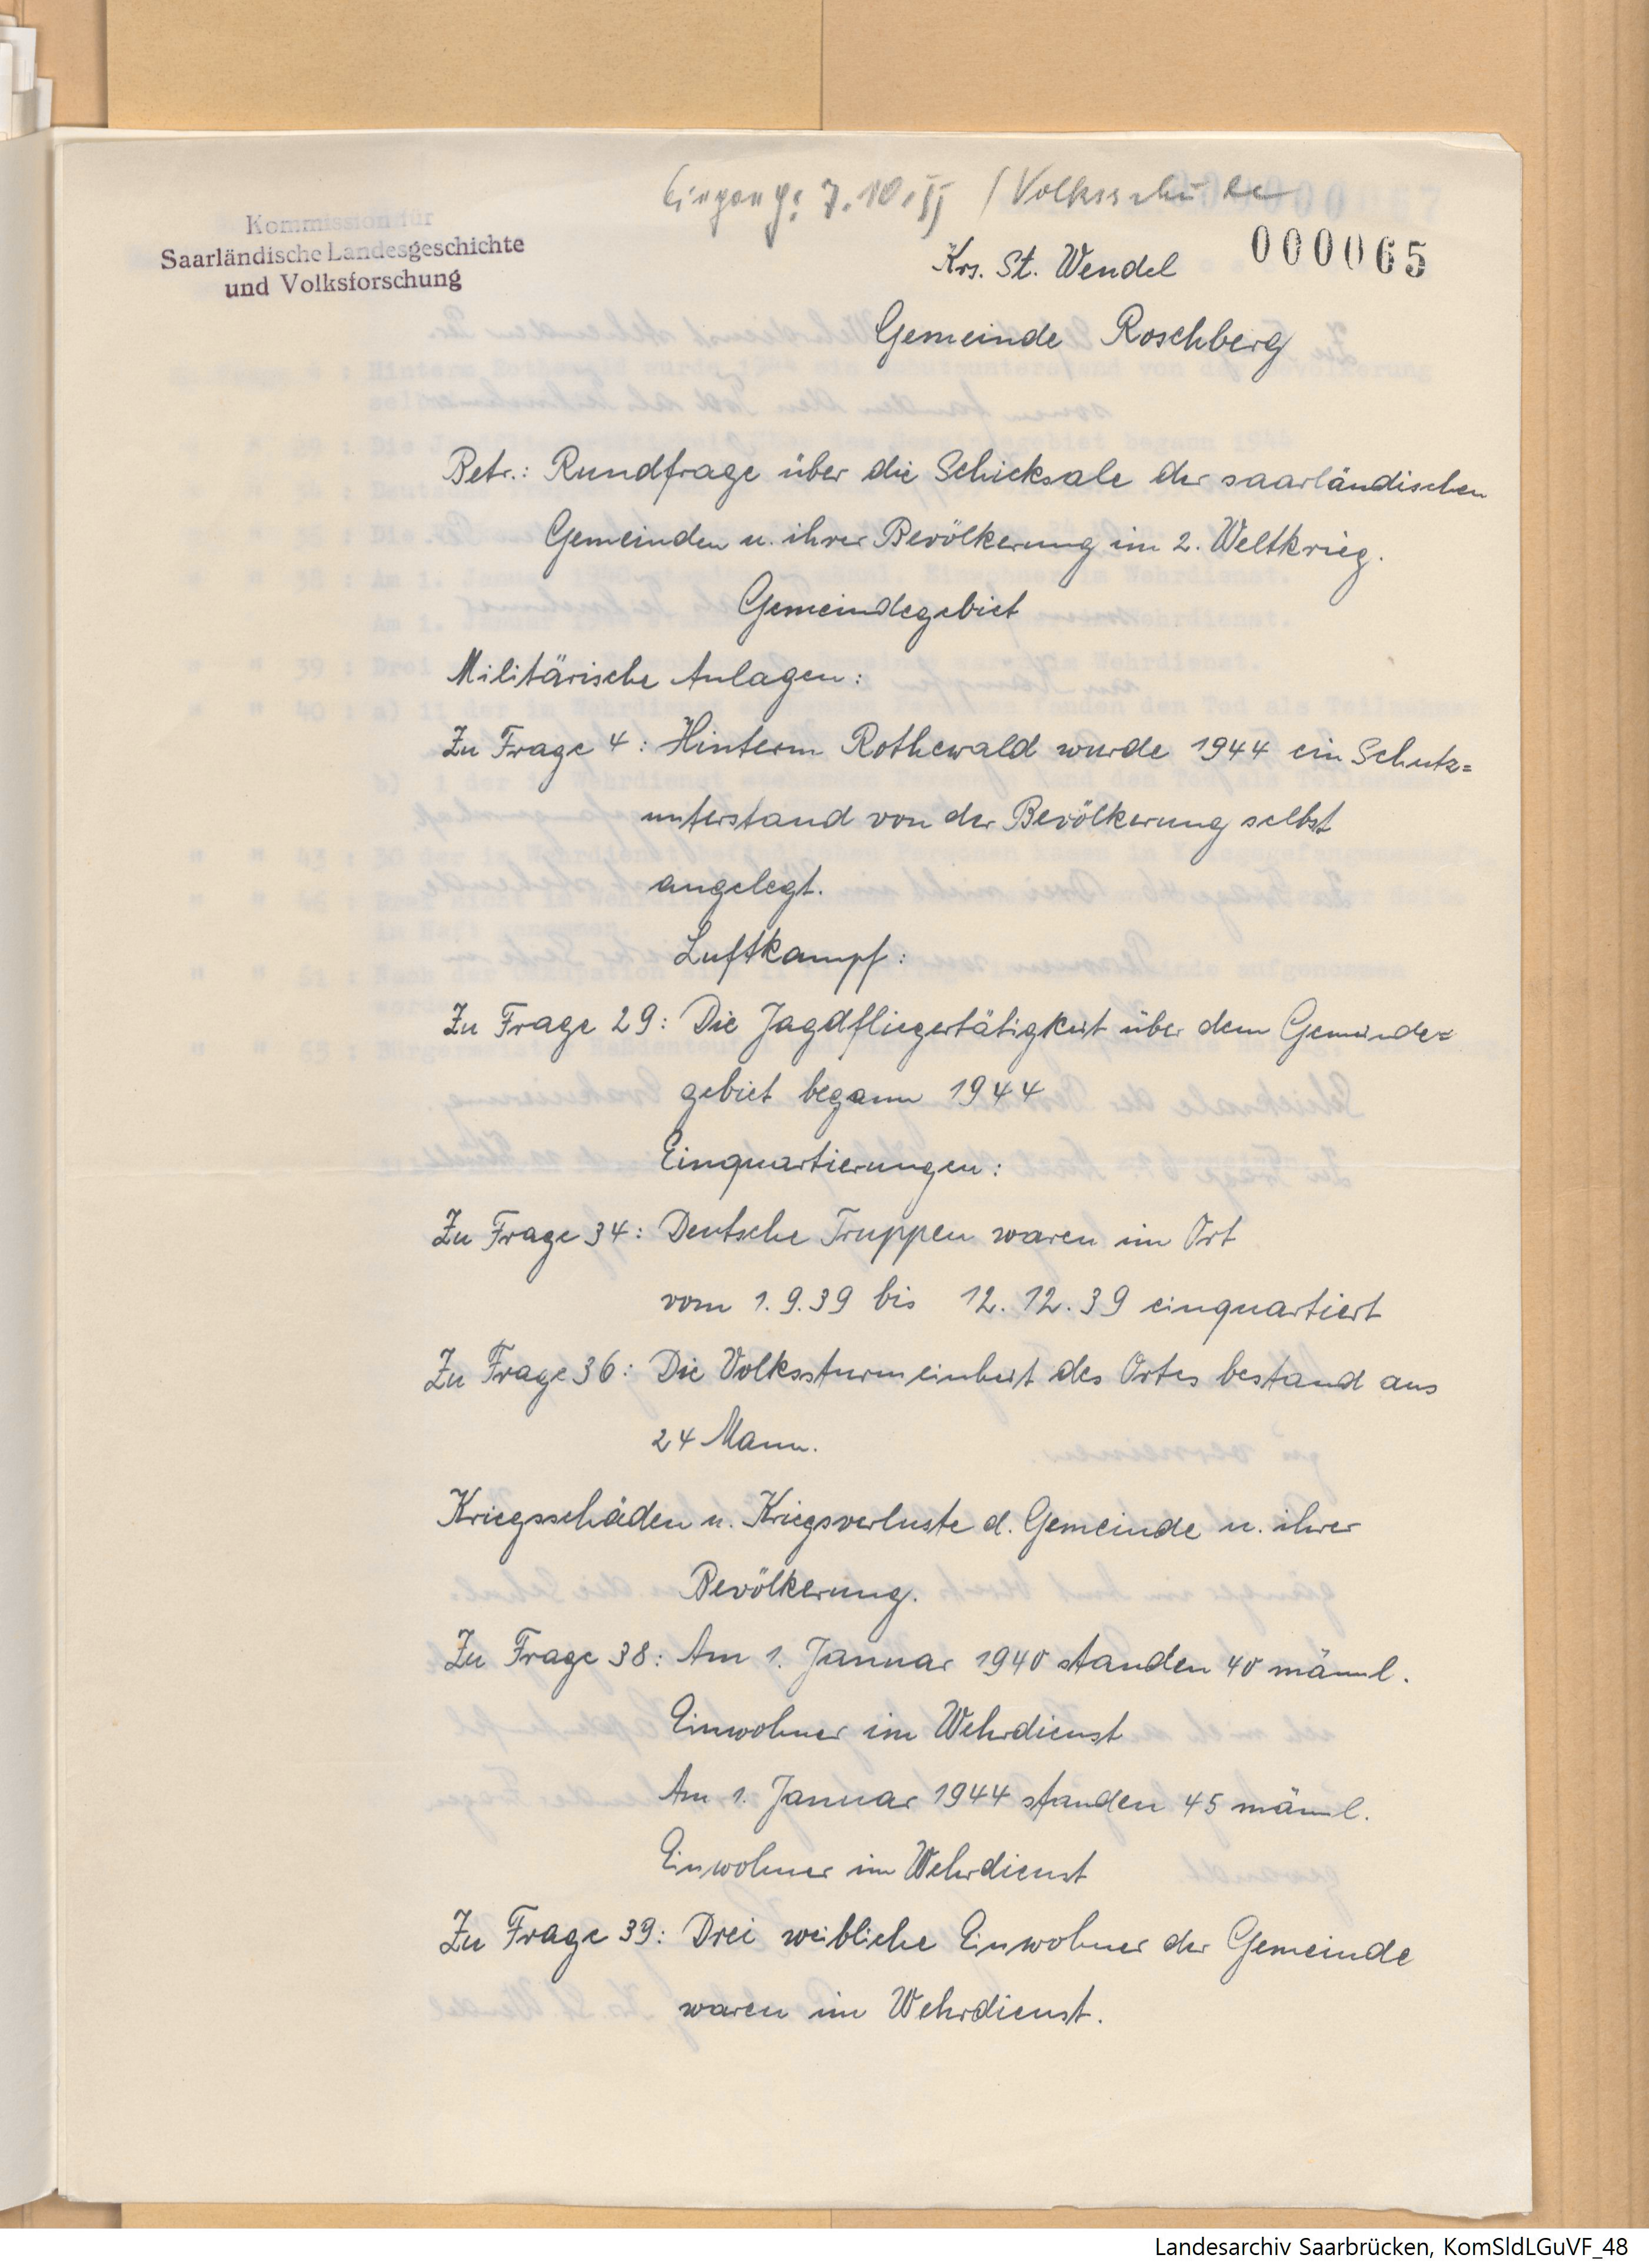 Eingang: 7.10.55 / Volksschule
Kommission für
Saarländische Landesgeschichte
und Volksforschung
000065
Krs. St. Wendel
Gemeinde Roschberg
Betr.: Rundfrage über die Schicksale der saarländischen
Gemeinden u. ihrer Bevölkerung im 2. Weltkrieg.
Gemeindegebiet
Militärische Anlagen:
Zu Frage 4: Hinterm Rothewald wurde 1944 ein Schutz=
unterstand von der Bevölkerung selbst
angelegt.
Luftkampf:
Zu Frage 29: Die Jagdfliegertätigkeit über dem Gemeinde=
gebiet begann 1944
Einquartierungen:
Zu Frage 34: Deutsche Truppen waren im Ort
vom 1.9.39 bis 12.12.39 einquartiert
Zu Frage 36: Die Volkssturmeinheit des Ortes bestand aus
24 Mann.
Kriegsschäden u. Kriegsverluste d. Gemeinde u. ihrer
Bevölkerung.
Zu Frage 38: Am 1. Januar 1940 standen 40 männl.
Einwohner im Wehrdienst
Am 1. Januar 1944 standen 45 männl.
Einwohner im Wehrdienst
Zu Frage 39: Drei weibliche Einwohner der Gemeinde
waren im Wehrdienst.
Landesarchiv Saarbrücken, KomSldLGuVF_48